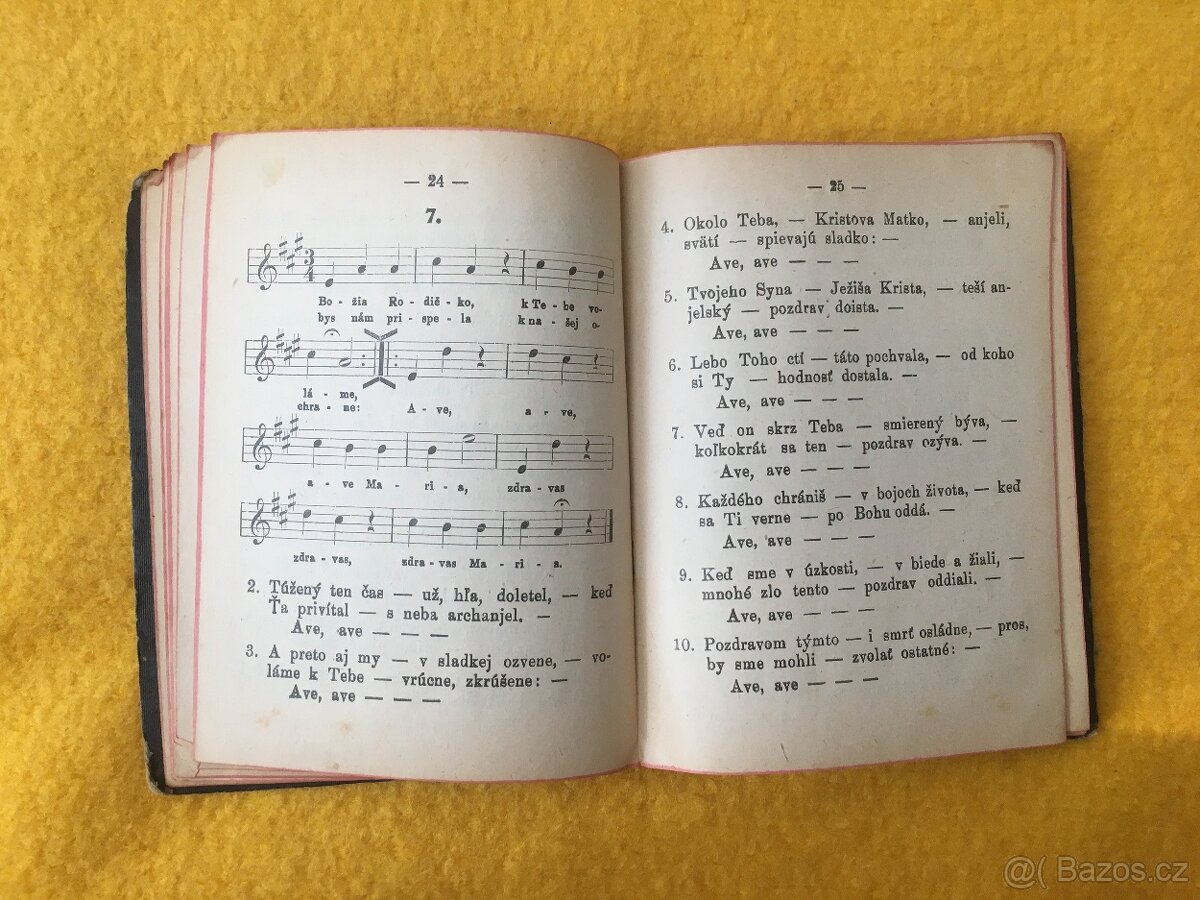 — 24 —
7.
3
4
Bo - žia Ro - dič - ko, k Te - be vo-
bys nám pri - spe - la k na - šej o-
lá - me,
chra - ne: A - ve, a - ve,
a - ve Ma - ri - a, zdra - vas
zdra - vas, zdra - vas Ma - ri - a.
2. Túžený ten čas — už, hľa, doletel, — keď
Ťa privítal — s neba archanjel. —
Ave, ave — — —
3. A preto aj my — v sladkej ozvene, — vo-
láme k Tebe — vrúcne, zkrúšene: —
Ave, ave — — —
— 25 —
4. Okolo Teba, — Kristova Matko, — anjeli,
svätí — spievajú sladko: —
Ave, ave — — —
5. Tvojeho Syna — Ježiša Krista, — teší an-
jelský — pozdrav doista. —
Ave, ave — — —
6. Lebo Toho ctí — táto pochvala, — od koho
si Ty — hodnosť dostala. —
Ave, ave — — —
7. Veď on skrz Teba — smierený býva, —
koľkokrát sa ten — pozdrav ozýva. —
Ave, ave — — —
8. Každého chrániš — v bojoch života, — keď
sa Ti verne — po Bohu oddá. —
Ave, ave — — —
9. Keď sme v úzkosti, — v biede a žiali, —
mnohé zlo tento — pozdrav oddiali. —
Ave, ave — — —
10. Pozdravom týmto — i smrť osládne, — pros,
by sme mohli — zvolať ostatné: —
Ave, ave — — —
@( Bazos.cz